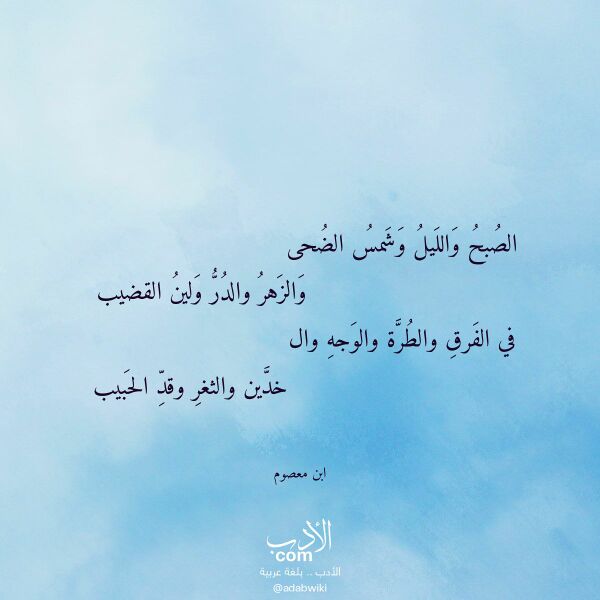 الصُبحُ وَاللَيلُ وَشَمسُ الضُحى
وَالزَهرُ والدُرُّ وَلينُ القضيب
في الفَرقِ والطُرَّة والوَجهِ وال
خدَّين والثغرِ وقدِّ الحَبيب
ابن معصوم
الأدب
com
الأدب .. بلغة عربية
@adabwiki